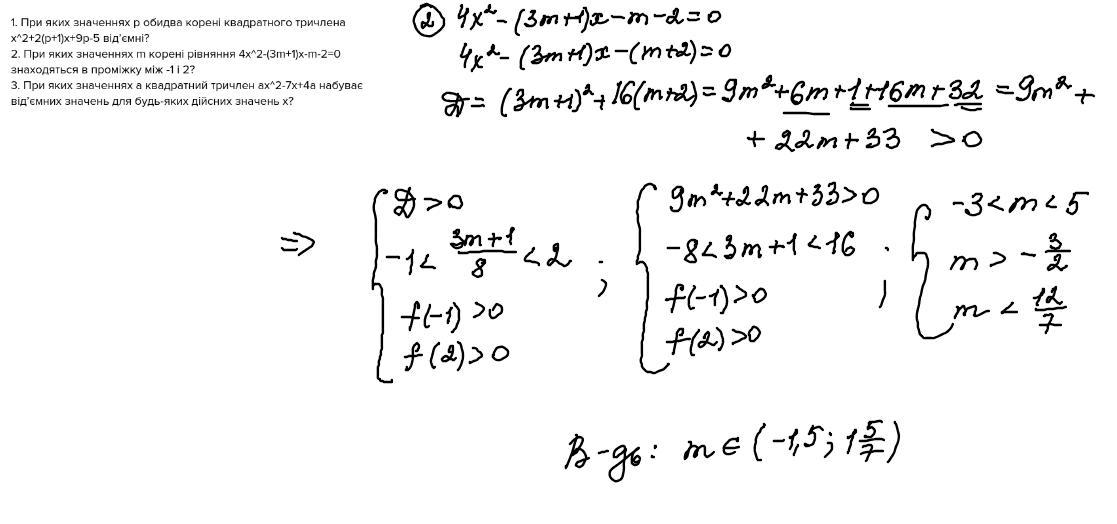 1. При яких значеннях p обидва корені квадратного тричлена
x^2+2(p+1)x+9p-5 від'ємні?
2. При яких значеннях m корені рівняння 4x^2-(3m+1)x-m-2=0
знаходяться в проміжку між -1 і 2?
3. При яких значеннях a квадратний тричлен ax^2-7x+4a набуває
від'ємних значень для будь-яких дійсних значень x?
② 4x² - (3m+1)x - m - 2 = 0
4x² - (3m+1)x - (m+2) = 0
D = (3m+1)² + 16(m+2) = 9m² + 6m + 1 + 16m + 32 = 9m² +
+ 22m + 33 > 0
=> { D > 0 ; { 9m² + 22m + 33 > 0 ; { -3 < m < 5
-1 < (3m+1)/8 < 2 -8 < 3m+1 < 16 m > -3/2
f(-1) > 0 f(-1) > 0 m < 12/7
f(2) > 0 f(2) > 0
В-дь: m ∈ (-1,5; 1 5/7)